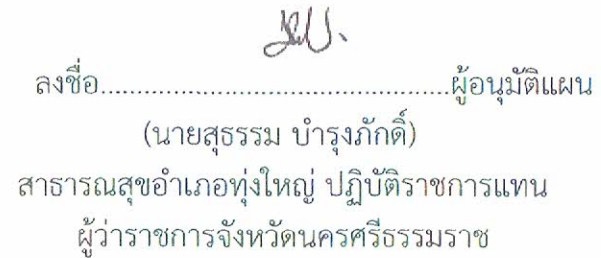 ลงชื่อ.................................................ผู้อนุมัติแผน
(นายสุธรรม บำรุงภักดิ์)
สาธารณสุขอำเภอทุ่งใหญ่ ปฏิบัติราชการแทน
ผู้ว่าราชการจังหวัดนครศรีธรรมราช